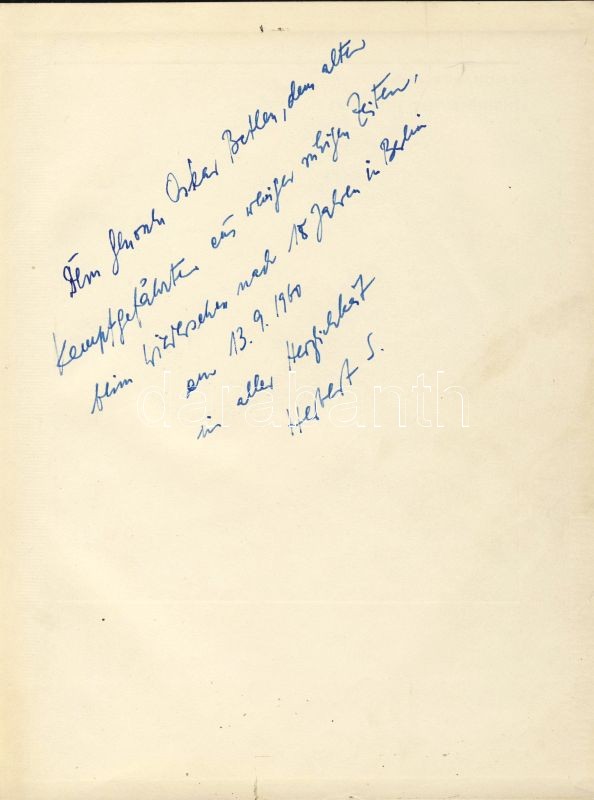 Dem Genossen Oskar Betlen, dem alten
Kampfgefährten aus weniger ruhigen Zeiten,
beim Wiedersehen nach 18 Jahren in Berlin
am 13. 9. 1960
in aller Herzlichkeit
Herbert S.
darabanth